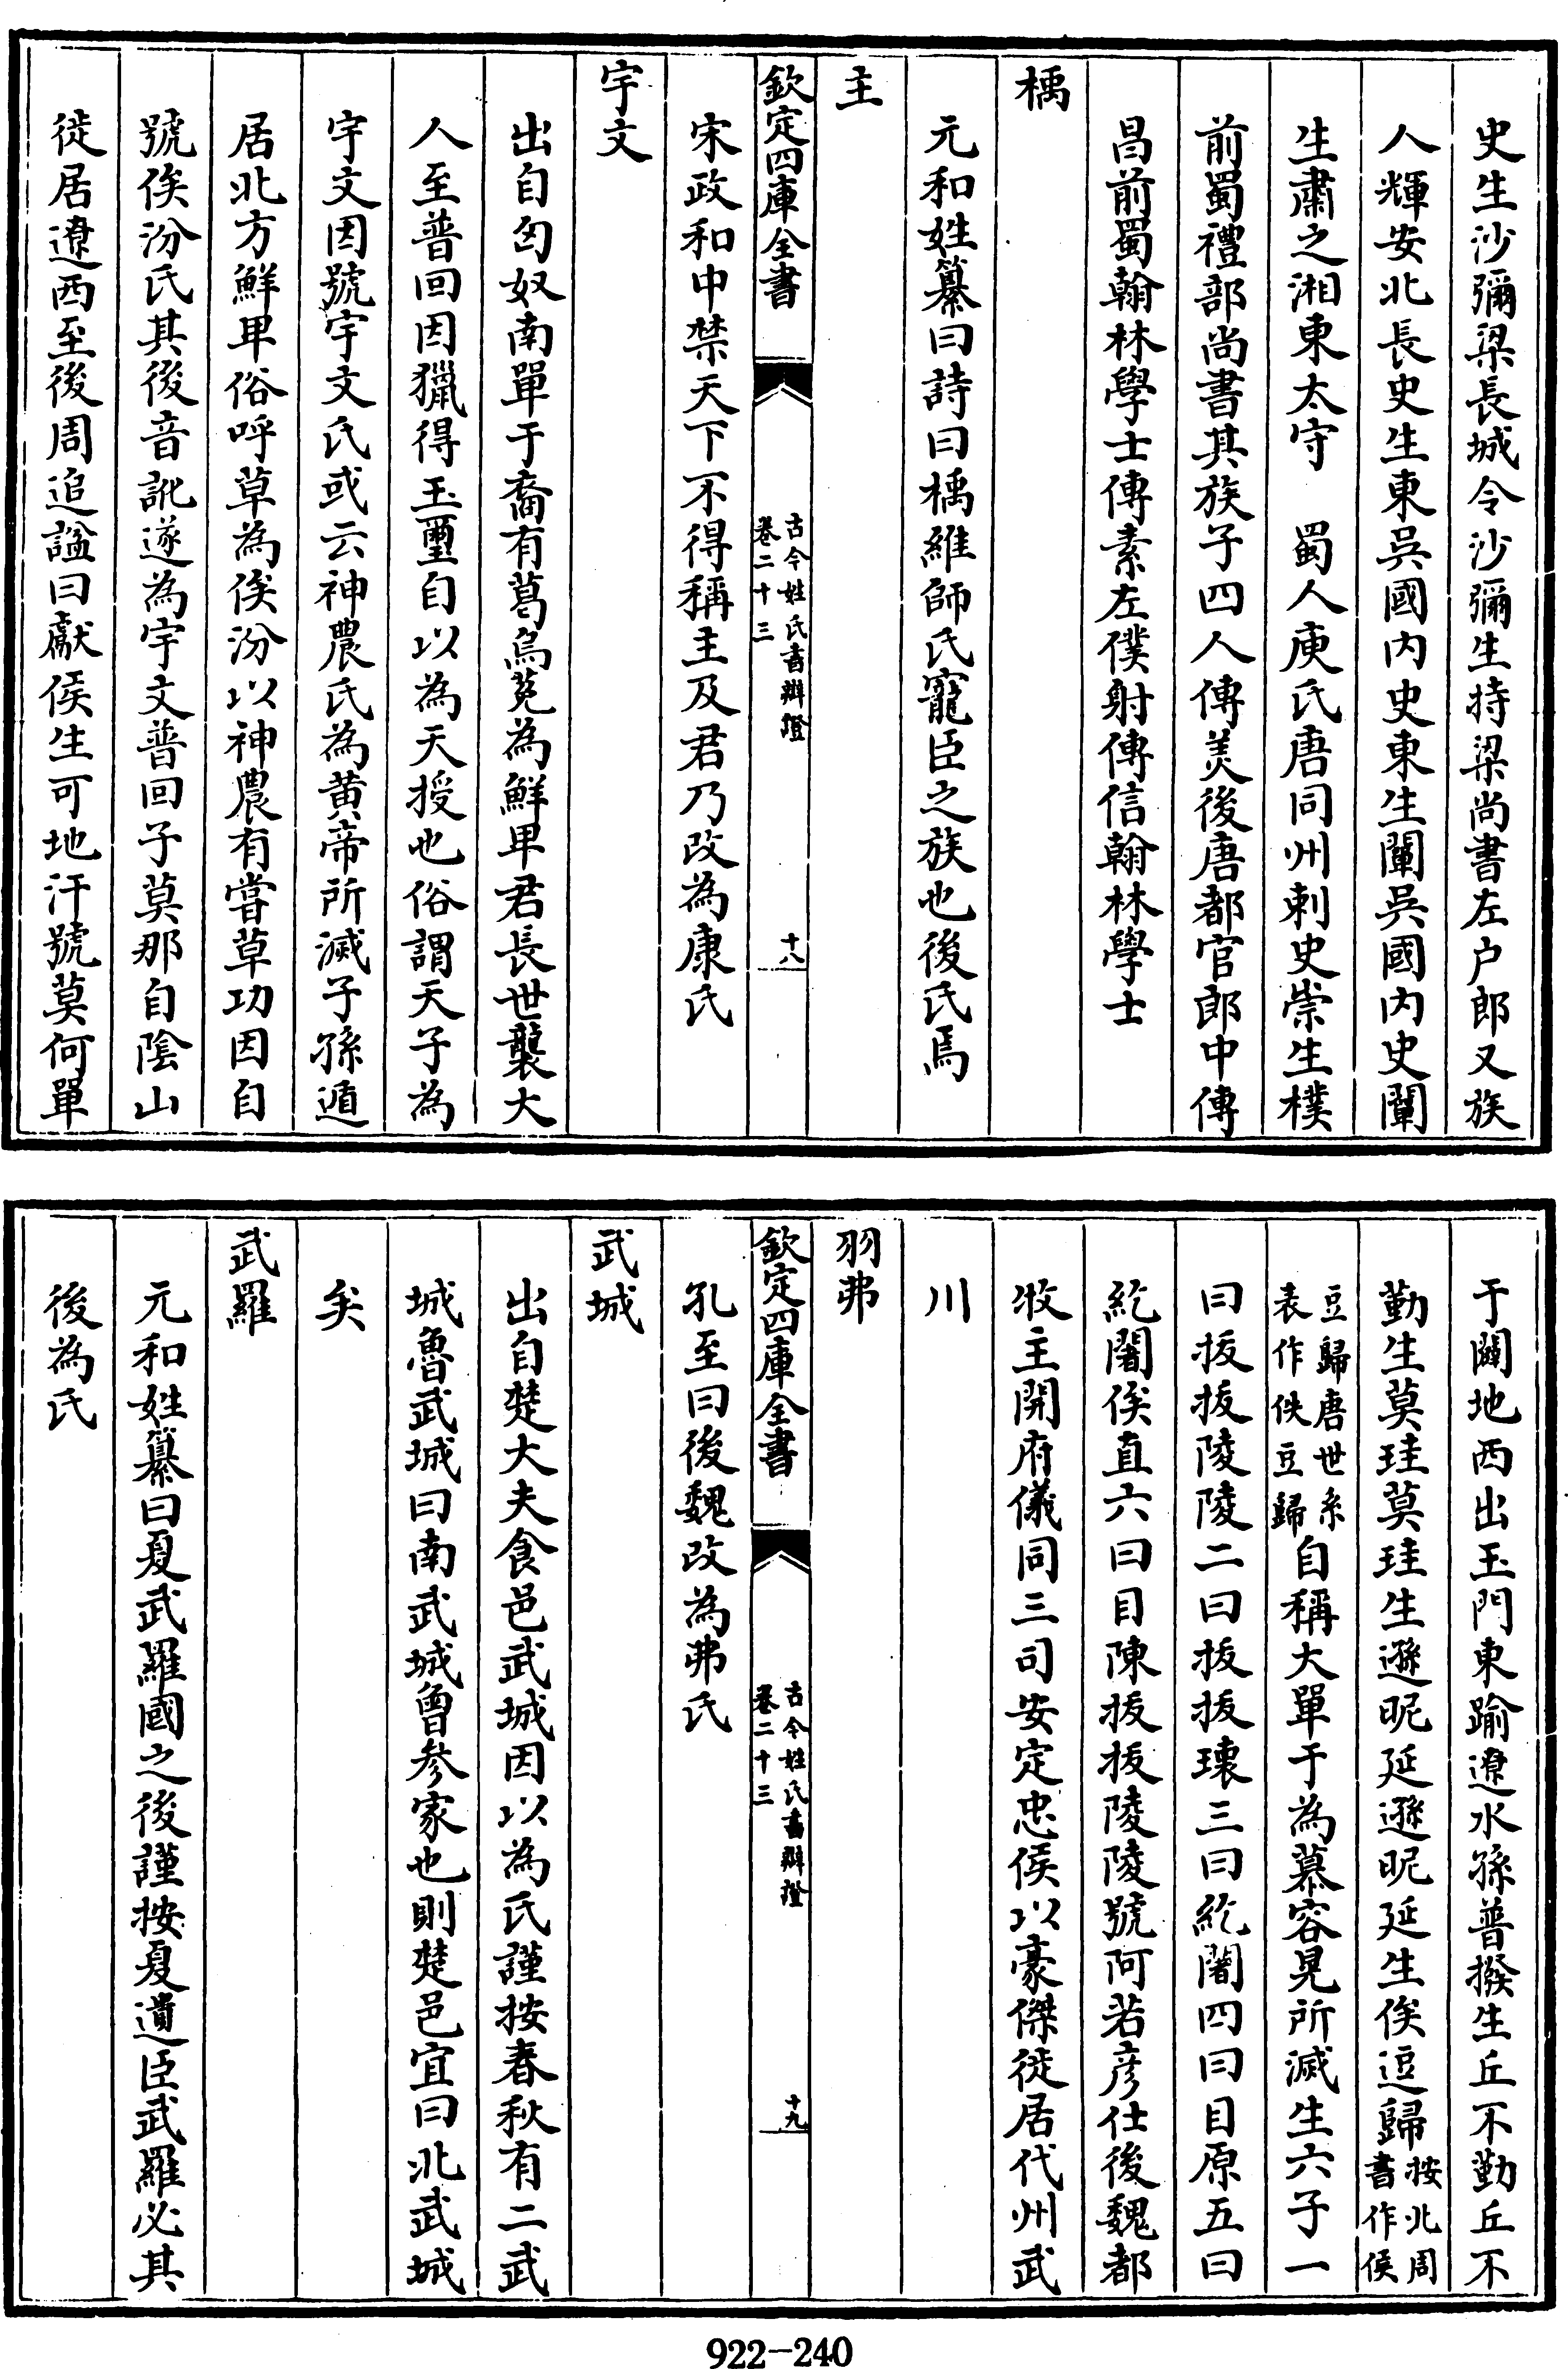 史生沙彌梁長城令沙彌生持梁尚書左户郎又族
人輝安北長史生東吳國内史東生闡吳國内史闡
生肅之湘東太守　蜀人庾氏唐同州刺史崇生樸
前蜀禮部尚書其族子四人傳美後唐都官郎中傳
昌前蜀翰林學士傳素左僕射傳信翰林學士
楀
元和姓纂曰詩曰楀維師氏寵臣之族也後氏焉
主
欽定四庫全書
古今姓氏書辯證
卷二十三
十八
宋政和中禁天下不得稱主及君乃改為康氏
宇文
出自匈奴南單于裔有葛烏菟為鮮卑君長世襲大
人至普回因獵得玉璽自以為天授也俗謂天子為
宇文因號宇文氏或云神農氏為黄帝所滅子孫遁
居北方鮮卑俗呼草為俟汾以神農有嘗草功因自
號俟汾氏其後音訛遂為宇文普回子莫那自陰山
徙居遼西至後周追諡曰獻侯生可地汗號莫何單
于闢地西出玉門東踰遼水孫普撥生丘不勤丘不
勤生莫珪莫珪生遜昵延遜昵延生俟逗歸按北周書作侯
豆歸唐世系表作佚豆歸自稱大單于為慕容晃所滅生六子一
曰拔拔陵陵二曰拔拔瓌三曰紇闍四曰目原五曰
紇闍俟直六曰目陳拔拔陵陵號阿若彦仕後魏都
牧主開府儀同三司安定忠侯以豪傑徙居代州武
川
羽弗
欽定四庫全書
古今姓氏書辯證
卷二十三
十九
孔至曰後魏改為弗氏
武城
出自楚大夫食邑武城因以為氏謹按春秋有二武
城魯武城曰南武城曾參家也則楚邑宜曰北武城
矣
武羅
元和姓纂曰夏武羅國之後謹按夏遺臣武羅必其
後為氏
922-240